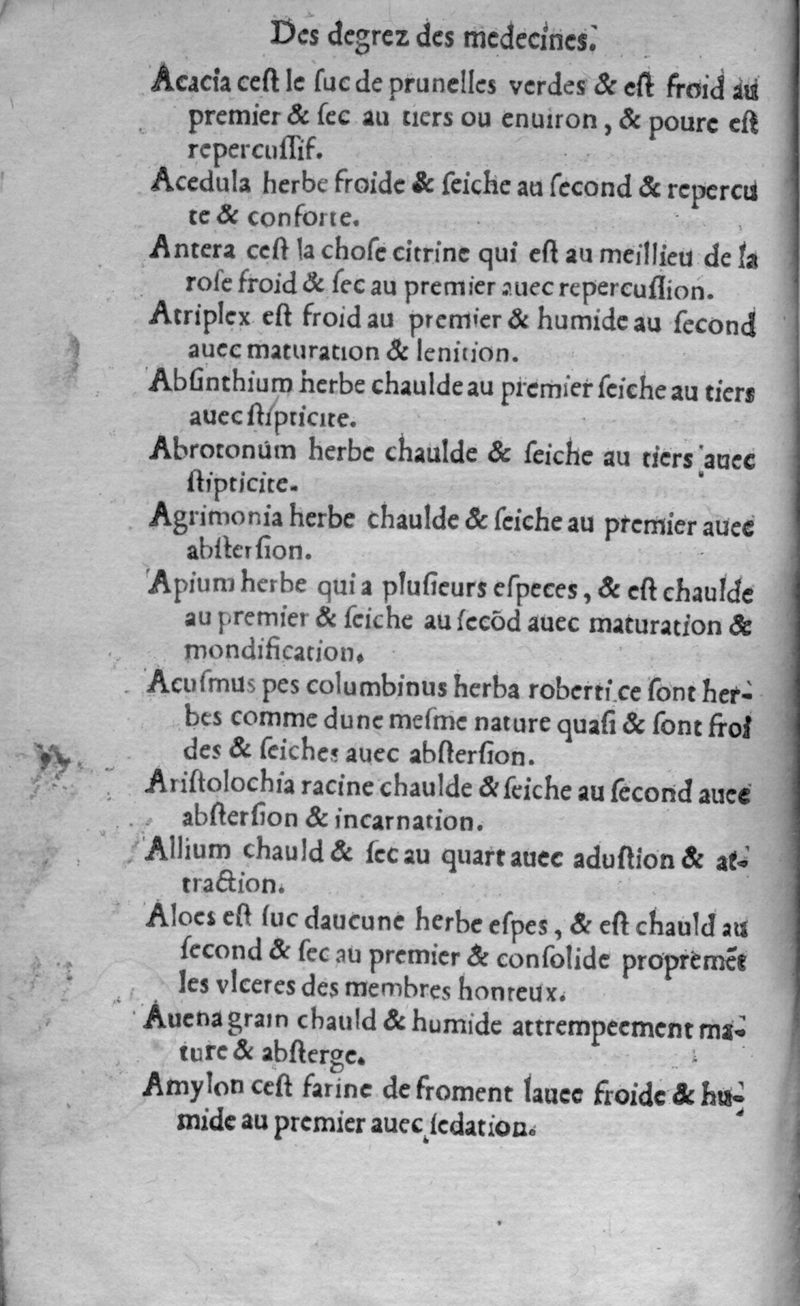 Des degrez des medecines.
Acacia ceſt le ſuc de prunelles verdes & eſt froid au
premier & ſec au tiers ou enuiron, & poure eſt
repercuſſif.
Acedula herbe froide & ſeiche au ſecond & repercu
te & conforte.
Antera ceſt la choſe citrine qui eſt au meillieu de la
roſe froid & ſec au premier auec repercuſſion.
Atriplex eſt froid au premier & humide au ſecond
auec maturation & lenition.
Abſinthium herbe chaulde au premier ſeiche au tiers
auec ſtipticite.
Abrotonum herbe chaulde & ſeiche au tiers auec
ſtipticite.
Agrimonia herbe chaulde & ſeiche au premier auec
abſterſion.
Apium herbe qui a pluſieurs eſpeces, & eſt chaulde
au premier & ſeiche au ſecõd auec maturation &
mondification.
Acuſmus pes columbinus herba roberti ce ſont her-
bes comme dune meſme nature quaſi & ſont froi
des & ſeiches auec abſterſion.
Ariſtolochia racine chaulde & ſeiche au ſecond auec
abſterſion & incarnation.
Allium chauld & ſec au quart auec aduſtion & at-
traction.
Aloes eſt ſuc daucune herbe eſpes, & eſt chauld au
ſecond & ſec au premier & conſolide propremẽt
les vlceres des membres honteux.
Auena grain chauld & humide attrempeement ma-
ture & abſterge.
Amylon ceſt farine de froment lauee froide & hu-
mide au premier auec ſedation.